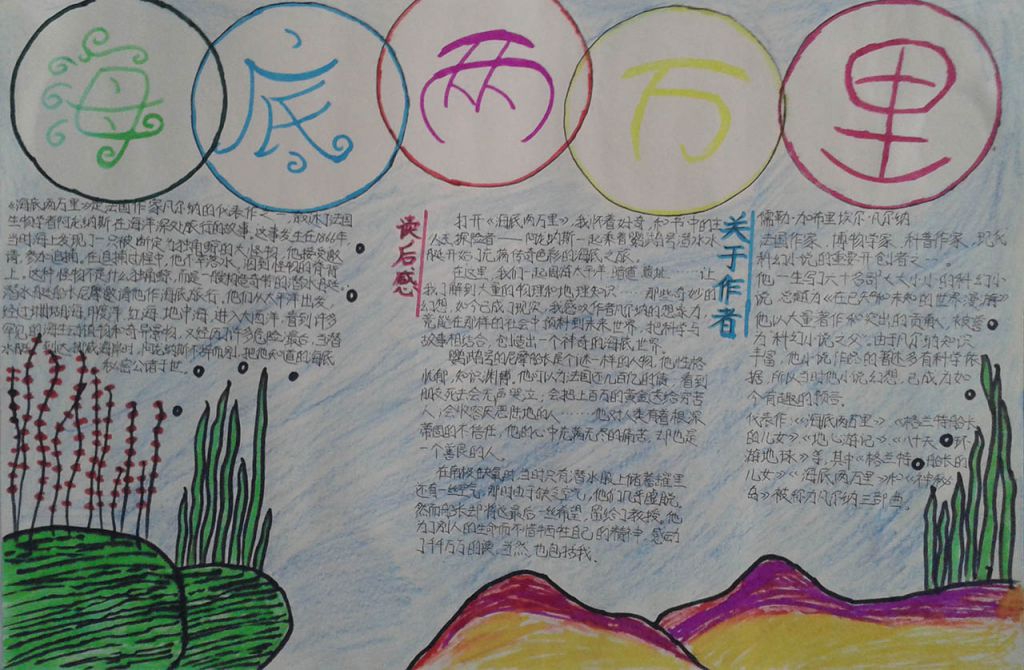 海底两万里
《海底两万里》是法国作家凡尔纳的代表作之一,叙述了法国
生物学者阿龙纳斯在海洋深处旅行的故事。这事发生在1866年
当时海上发现了一只被断定为独角鲸的大怪物,他接受邀
请参加追捕,在追捕过程中,他不幸落水,泅到怪物的脊背
上。这种怪物不是什么独角鲸,而是一艘构造奇妙的潜水船。
潜水船船长尼摩邀请他作海底旅行。他们从太平洋出发,
经过珊瑚海,印度洋,红海,地中海,进入大西洋,看到许多
罕见的海生动植物和奇异景物,又经历许多危险,最后,当潜
水船到达挪威海岸时,阿龙纳斯不辞而别,把他知道的海底
秘密公诸于世。
读后感
打开《海底两万里》,我怀着好奇,和书中的主
人公探险者——阿龙纳斯一起乘着鹦鹉号潜水水
艇开始了充满传奇色彩的海底之旅。
在这里,我们一起周游太平洋 让
我了解到大量的物理和地理知识……那些奇妙的
幻想,如今已成了现实,我感叹作者凡尔纳的想象力,
竟能在那样的社会中 到未来世界,把科学与
故事相结合,创造出一个神奇的海底世界。
鹦鹉号的尼摩船长是个谜一样的人物,他性格
忧郁,知识渊博,他可以为法国还几百亿的债,看到
朋友死去会无声哭泣,会把上百万的黄金送给穷苦
人,会收容 陆地的人……他对人类有着根深
蒂固的不信任,他的心中充满无尽的痛苦,却也是
一个善良的人。
在南极缺氧时,当时只有潜水服上储蓄罐里
还有一丝空气,那时由于缺乏空气,他们几乎虚脱,
然而船长却将这最后一丝希望,留给了教授,他
为了别人的生命而不惜牺牲自己的精神,感动
了千千万万的读 ,当然,也包括我。
关于作者
儒勒·加布里埃尔·凡尔纳
法国作家,博物学家,科普作家,现代
科幻小说的重要开创者之一。
他一生写了六十多部大大小小的科幻小
说,总题为《在已知和未知的世界漫游》
他以大量著作和突出的贡献,被誉
为"科幻小说之父"。由于凡尔纳知识
丰富,他小说作品的著述多有科学依
据,所以当时他小说幻想,已成为如
今有趣的预言。
代表作:《海底两万里》《格兰特船长
的儿女》《地心游记》《八十天环
游地球》等,其中《格兰特船长的
儿女》《海底两万里》和《神秘
岛》被称为凡尔纳三部曲。